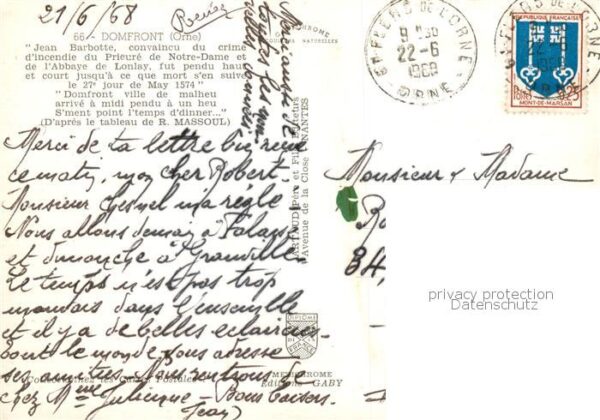 21/6/68
66 - DOMFRONT (Orne)
"Jean Barbotte, convaincu du crime
d'incendie du Prieuré de Notre-Dame et
de l'Abbaye de Lonlay, fut pendu haut
et court jusqu'à ce que mort s'en suive
le 27e jour de May 1574"
"Domfront ville de malheur
arrivé à midi pendu à un heu
S'ment point l'temps d'dinner..."
(D'après le tableau de R. MASSOUL)
Merci de ta lettre bien reçue
ce matin, mon cher Robert
Monsieur Chesnel m'a réglé
Nous allons demain à Falaise
et dimanche à Granville
Le temps n'est pas trop
mauvais dans l'ensemble
et il y a de belles éclaircies.
Tout le monde vous adresse
ses amitiés. Nous rentrons
chez Mme Julienne - Bons baisers
Jean
ARTAUD Père et Fils, Editeurs
Avenue de la Close - NANTES
MEXICHROME
Editions GABY
61 FLERS DE L'ORNE
9H30
22-6
1968
ORNE
REPUBLIQUE FRANCAISE
0,25
MONT-DE-MARSAN
Monsieur & Madame
Ro
34,
privacy protection
Datenschutz